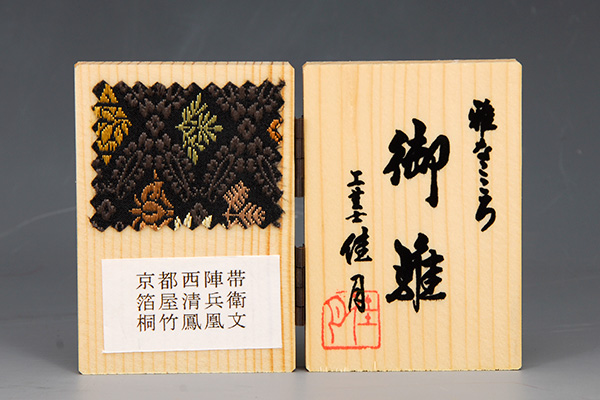 京都西陣帯
箔屋清兵衛
桐竹鳳凰文
雅なこころ
御雛
工芸士 佳月